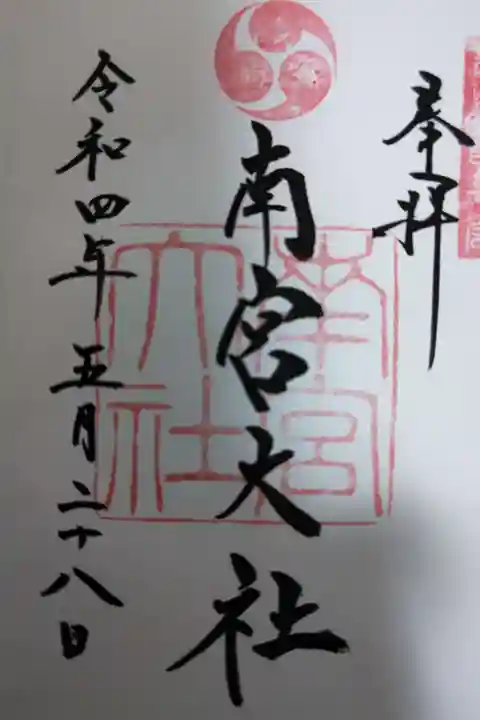 奉拝
南宮大社
南宮大社
令和四年五月二十八日